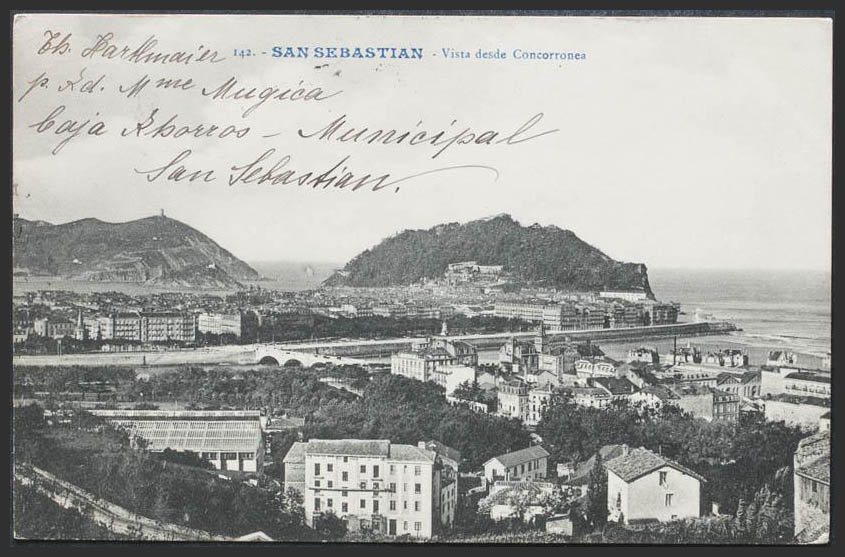 142. - SAN SEBASTIAN - Vista desde Concorronea
Th. Hartkmaier
p. Ad. Mme Mugica
Caja Ahorros - Municipal
San Sebastian.